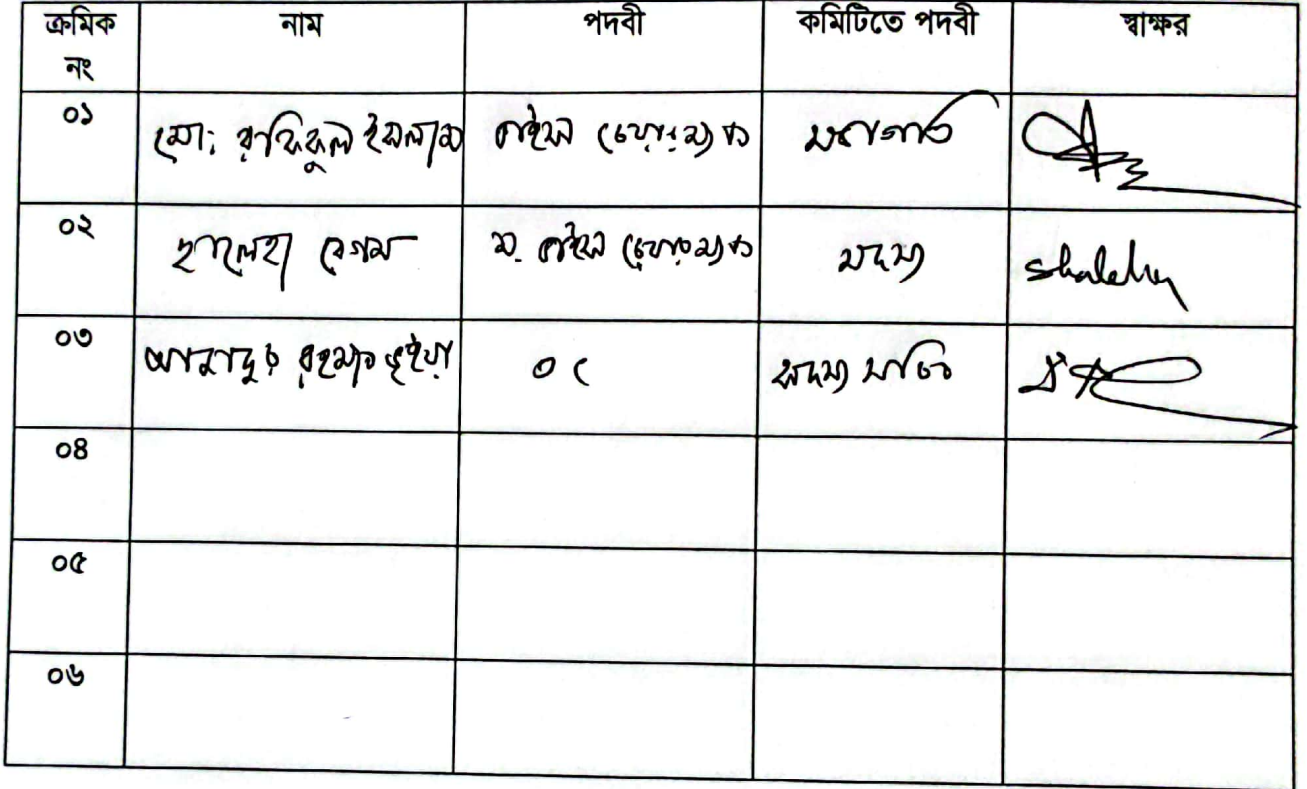 ক্রমিক নং নাম পদবী কমিটিতে পদবী স্বাক্ষর
০১ মো: রফিকুল ইসলাম ভাইস চেয়ারম্যান সভাপতি
০২ ছালেহা বেগম ম. ভাইস চেয়ারম্যান সদস্য Shaleha
০৩ রহমান ভূইয়া সদস্য সচিব
০৪
০৫
০৬